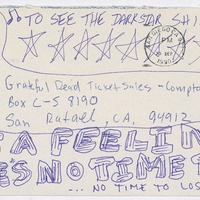 TO SEE THE DARKSTAR SHI
Grateful Dead Ticket Sales - Compto
Box C-S 8190
San Rafael, CA, 94912
A FEELIN
E'S NO TIME T
... NO TIME TO LOS